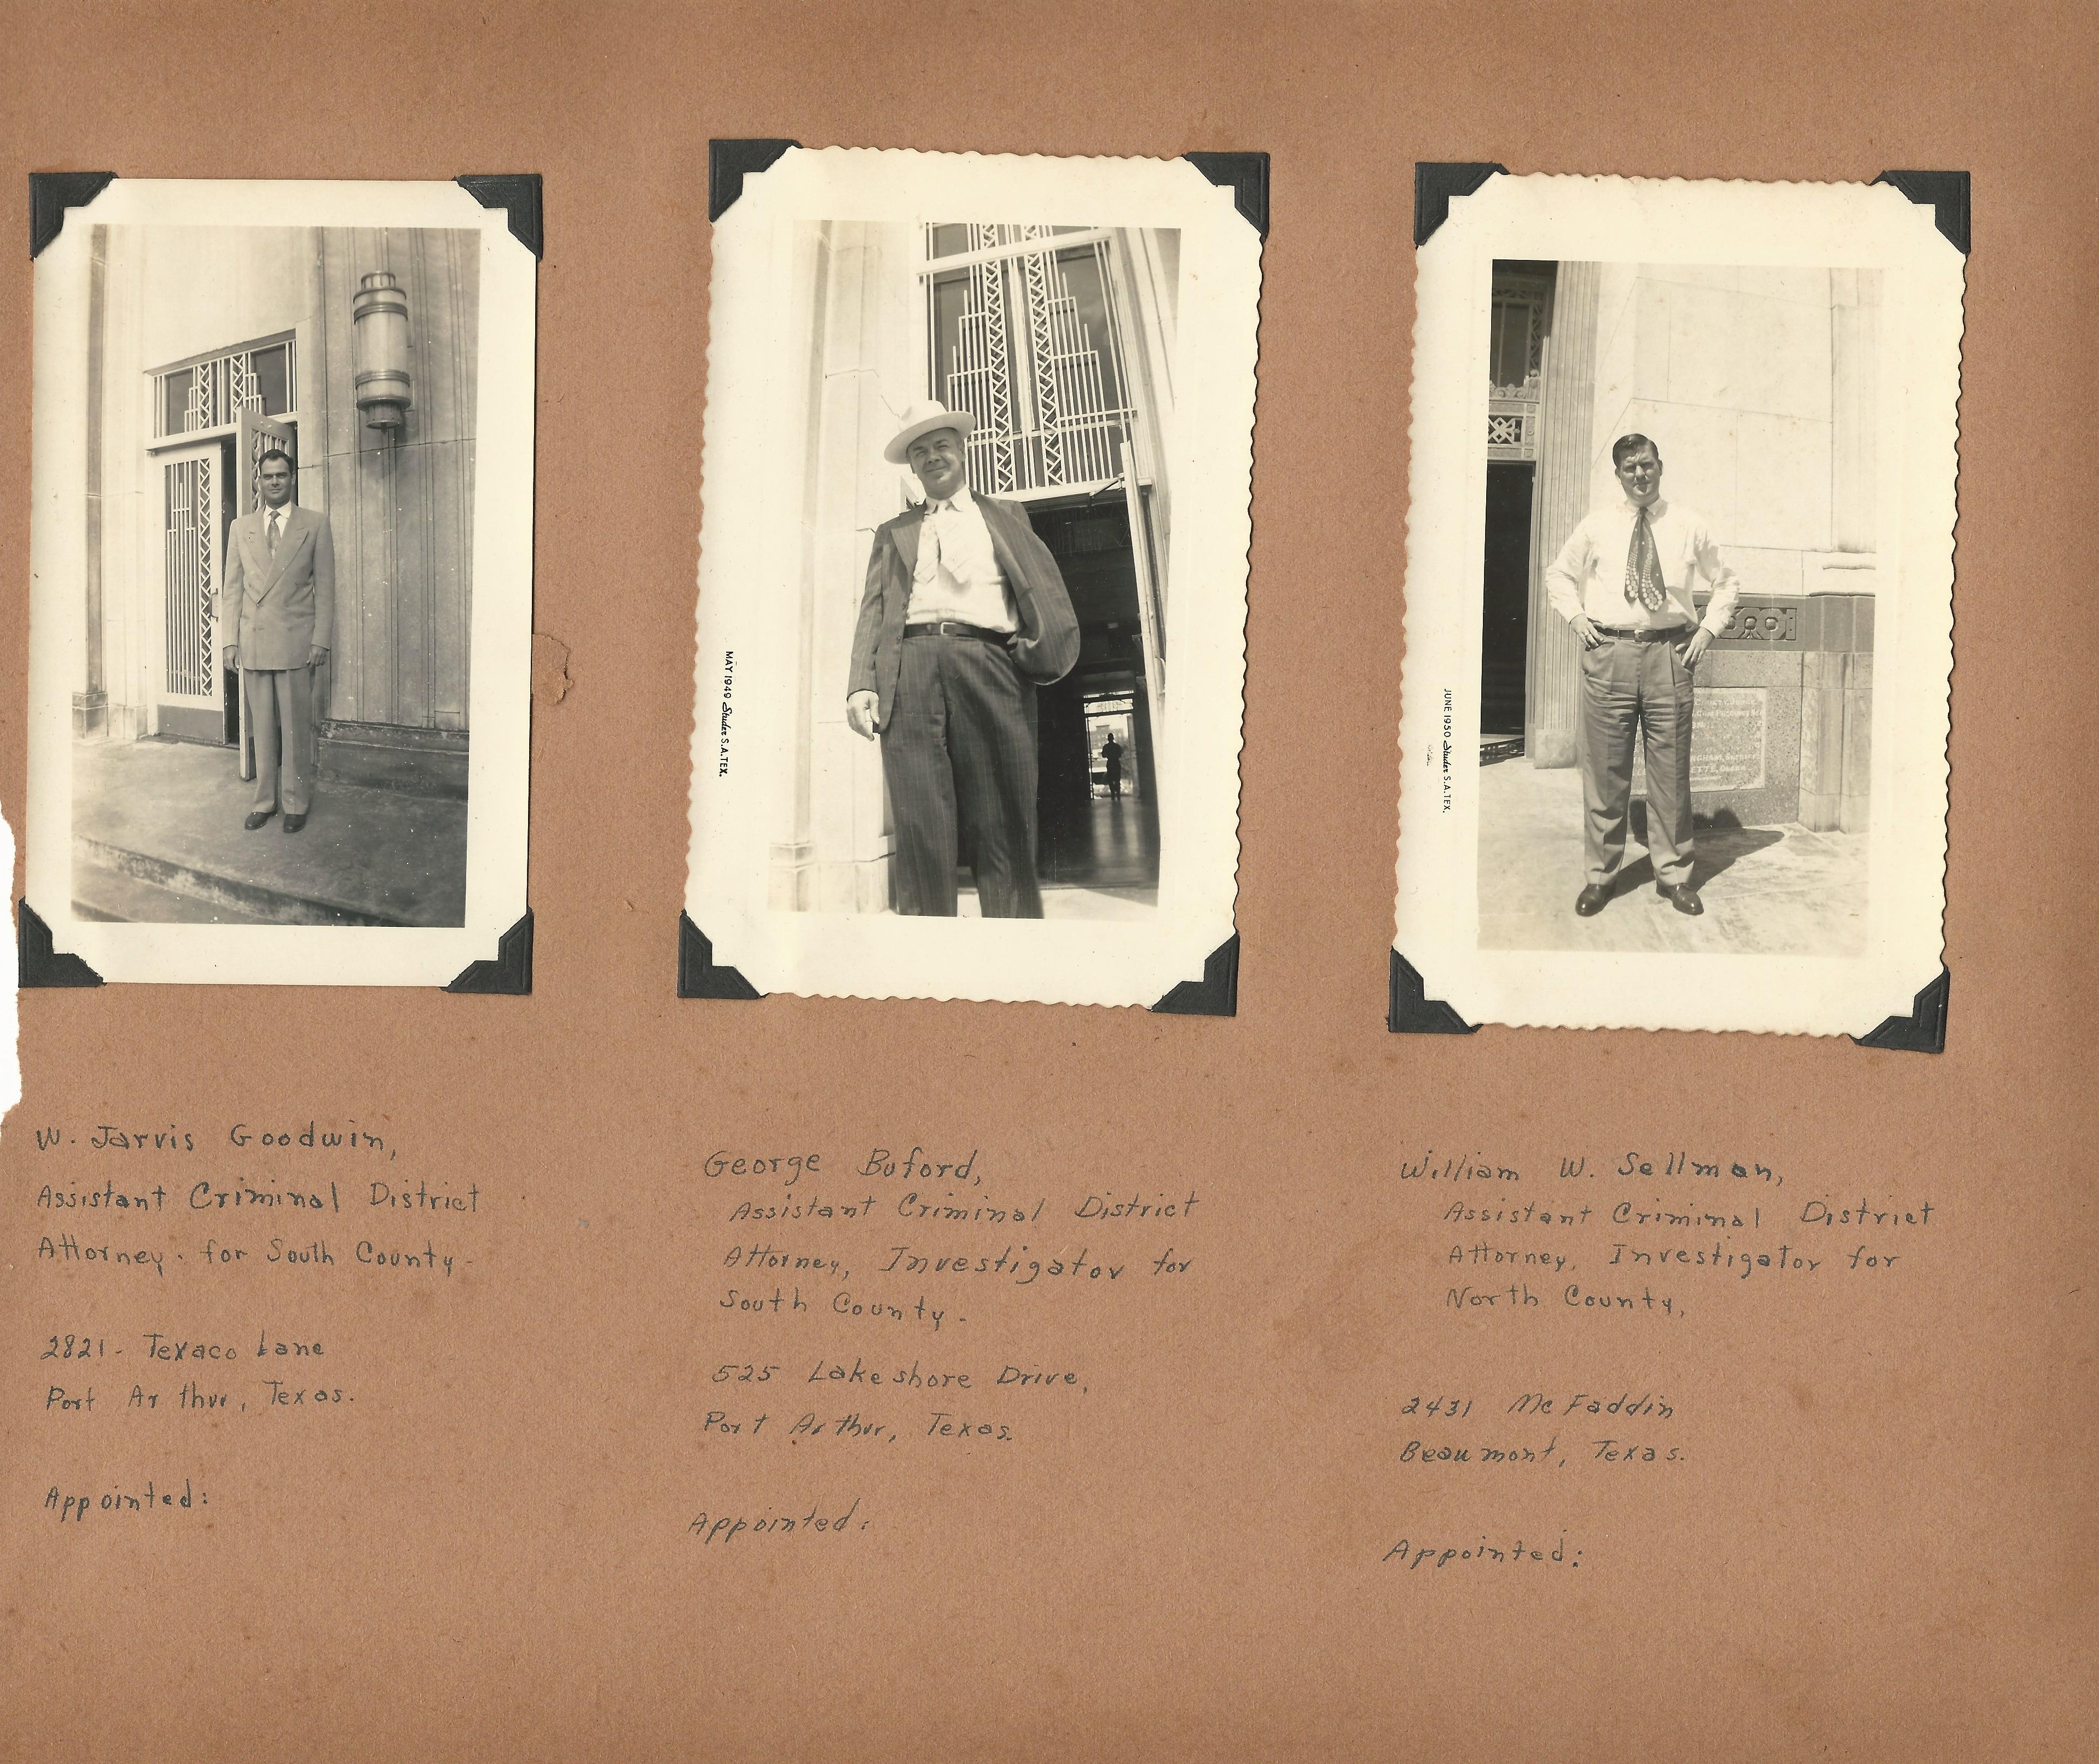 MAY 1949 Studer S.A.TEX.
JUNE 1950 Studer S.A.TEX.
W. Jarvis Goodwin,
Assistant Criminal District
Attorney. for South County.
2821. Texaco Lane
Port Arthur, Texas.
Appointed:
George Buford,
Assistant Criminal District
Attorney, Investigator for
South County.
525 Lakeshore Drive,
Port Arthur, Texas.
Appointed:
William W. Sellman,
Assistant Criminal District
Attorney, Investigator for
North County,
2431 McFaddin
Beaumont, Texas.
Appointed: